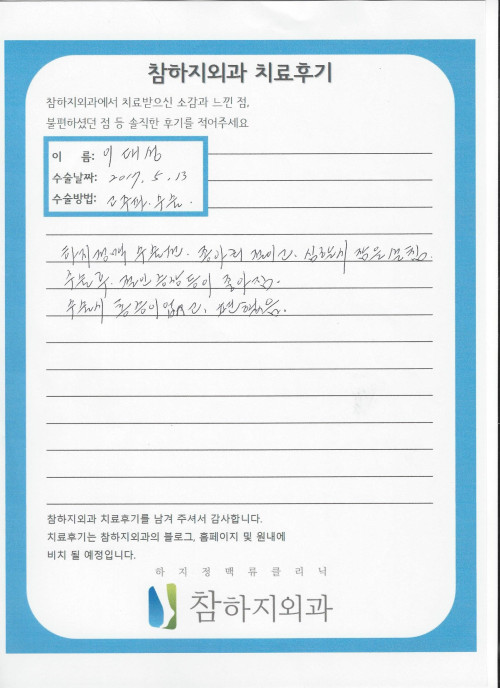 참하지외과 치료후기
참하지외과에서 치료받으신 소감과 느낀 점,
불편하셨던 점 등 솔직한 후기를 적어주세요
이 름: 이대성
수술날짜: 2017. 5. 13
수술방법: 고주파. 수술.
하지정맥 수술전. 종아리 절이고. 심할시 잠을 못잠.
수술후. 절인 능상등이 좋아짐.
수술시 통증이 없고, 편했음.
참하지외과 치료후기를 남겨 주셔서 감사합니다.
치료후기는 참하지외과의 블로그, 홈페이지 및 원내에
비치 될 예정입니다.
하지정맥류클리닉
참하지외과